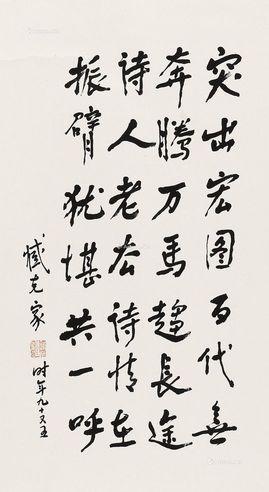 突出宏图百代无
奔腾万马趋长途
诗人老去诗情在
振臂犹堪共一呼
臧克家
时年九十又五